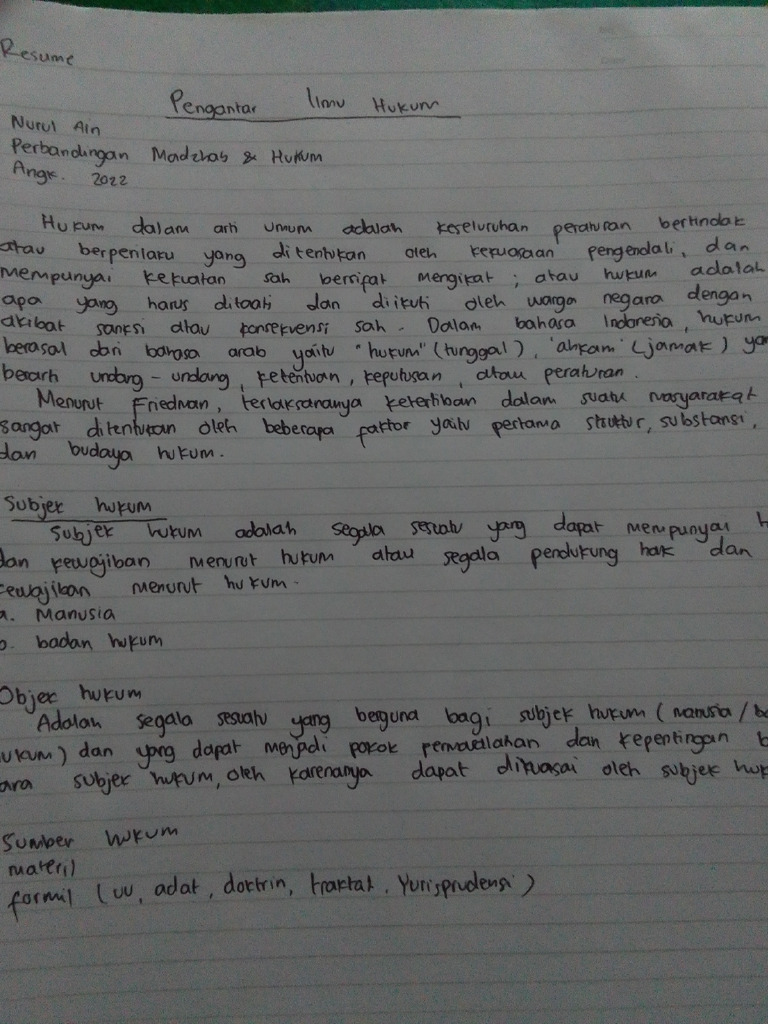 Resume
Pengantar Ilmu Hukum
Nurul Ain
Perbandingan Madzhab & Hukum
Angk. 2022
Hukum dalam arti umum adalah keseluruhan peraturan bertindak
atau berperilaku yang ditentukan oleh kekuasaan pengendali, dan
mempunyai kekuatan sah bersifat mengikat ; atau hukum adalah
apa yang harus ditaati dan diikuti oleh warga negara dengan
akibat sanksi atau konsekuensi sah. Dalam bahasa Indonesia, hukum
berasal dari bahasa arab yaitu "hukum" (tunggal), 'ahkam' (jamak) ya
berarti undang - undang, ketentuan, keputusan, atau peraturan.
Menurut Friedman, terlaksananya ketertiban dalam suatu masyarakat
sangat ditentukan oleh beberapa faktor yaitu pertama struktur, substansi,
dan budaya hukum.
Subjek hukum
Subjek hukum adalah segala sesuatu yang dapat mempunyai h
dan kewajiban menurut hukum atau segala pendukung hak dan
kewajiban menurut hukum.
a. Manusia
b. badan hukum
Objek hukum
Adalah segala sesuatu yang berguna bagi subjek hukum (manusia / ba
ukum) dan yang dapat menjadi pokok permasalahan dan kepentingan b
ara subjek hukum, oleh karenanya dapat dikuasai oleh subjek huk
Sumber hukum
materil
formil (UU, adat, doktrin, traktat, Yurisprudensi)